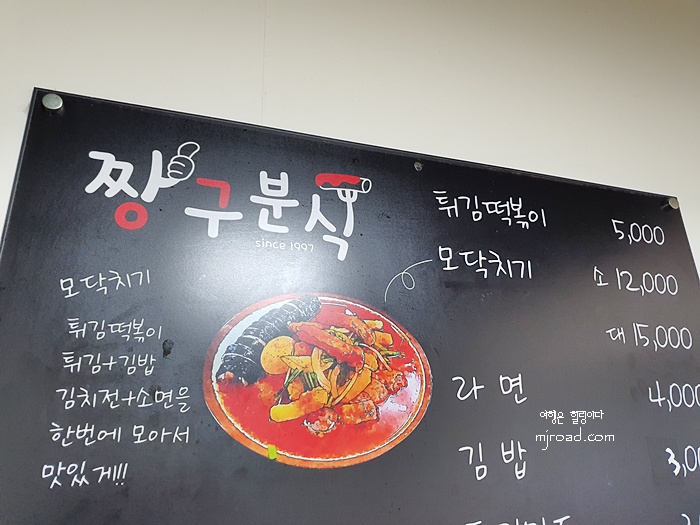 짱구분식
since 1997
모닥치기
튀김떡볶이
튀김+김밥
김치전+소면을
한번에 모아서
맛있게!!
튀김떡볶이 5,000
모닥치기 소 12,000
대 15,000
라면 4,000
김밥
여행은 힐링이다
mjroad.com